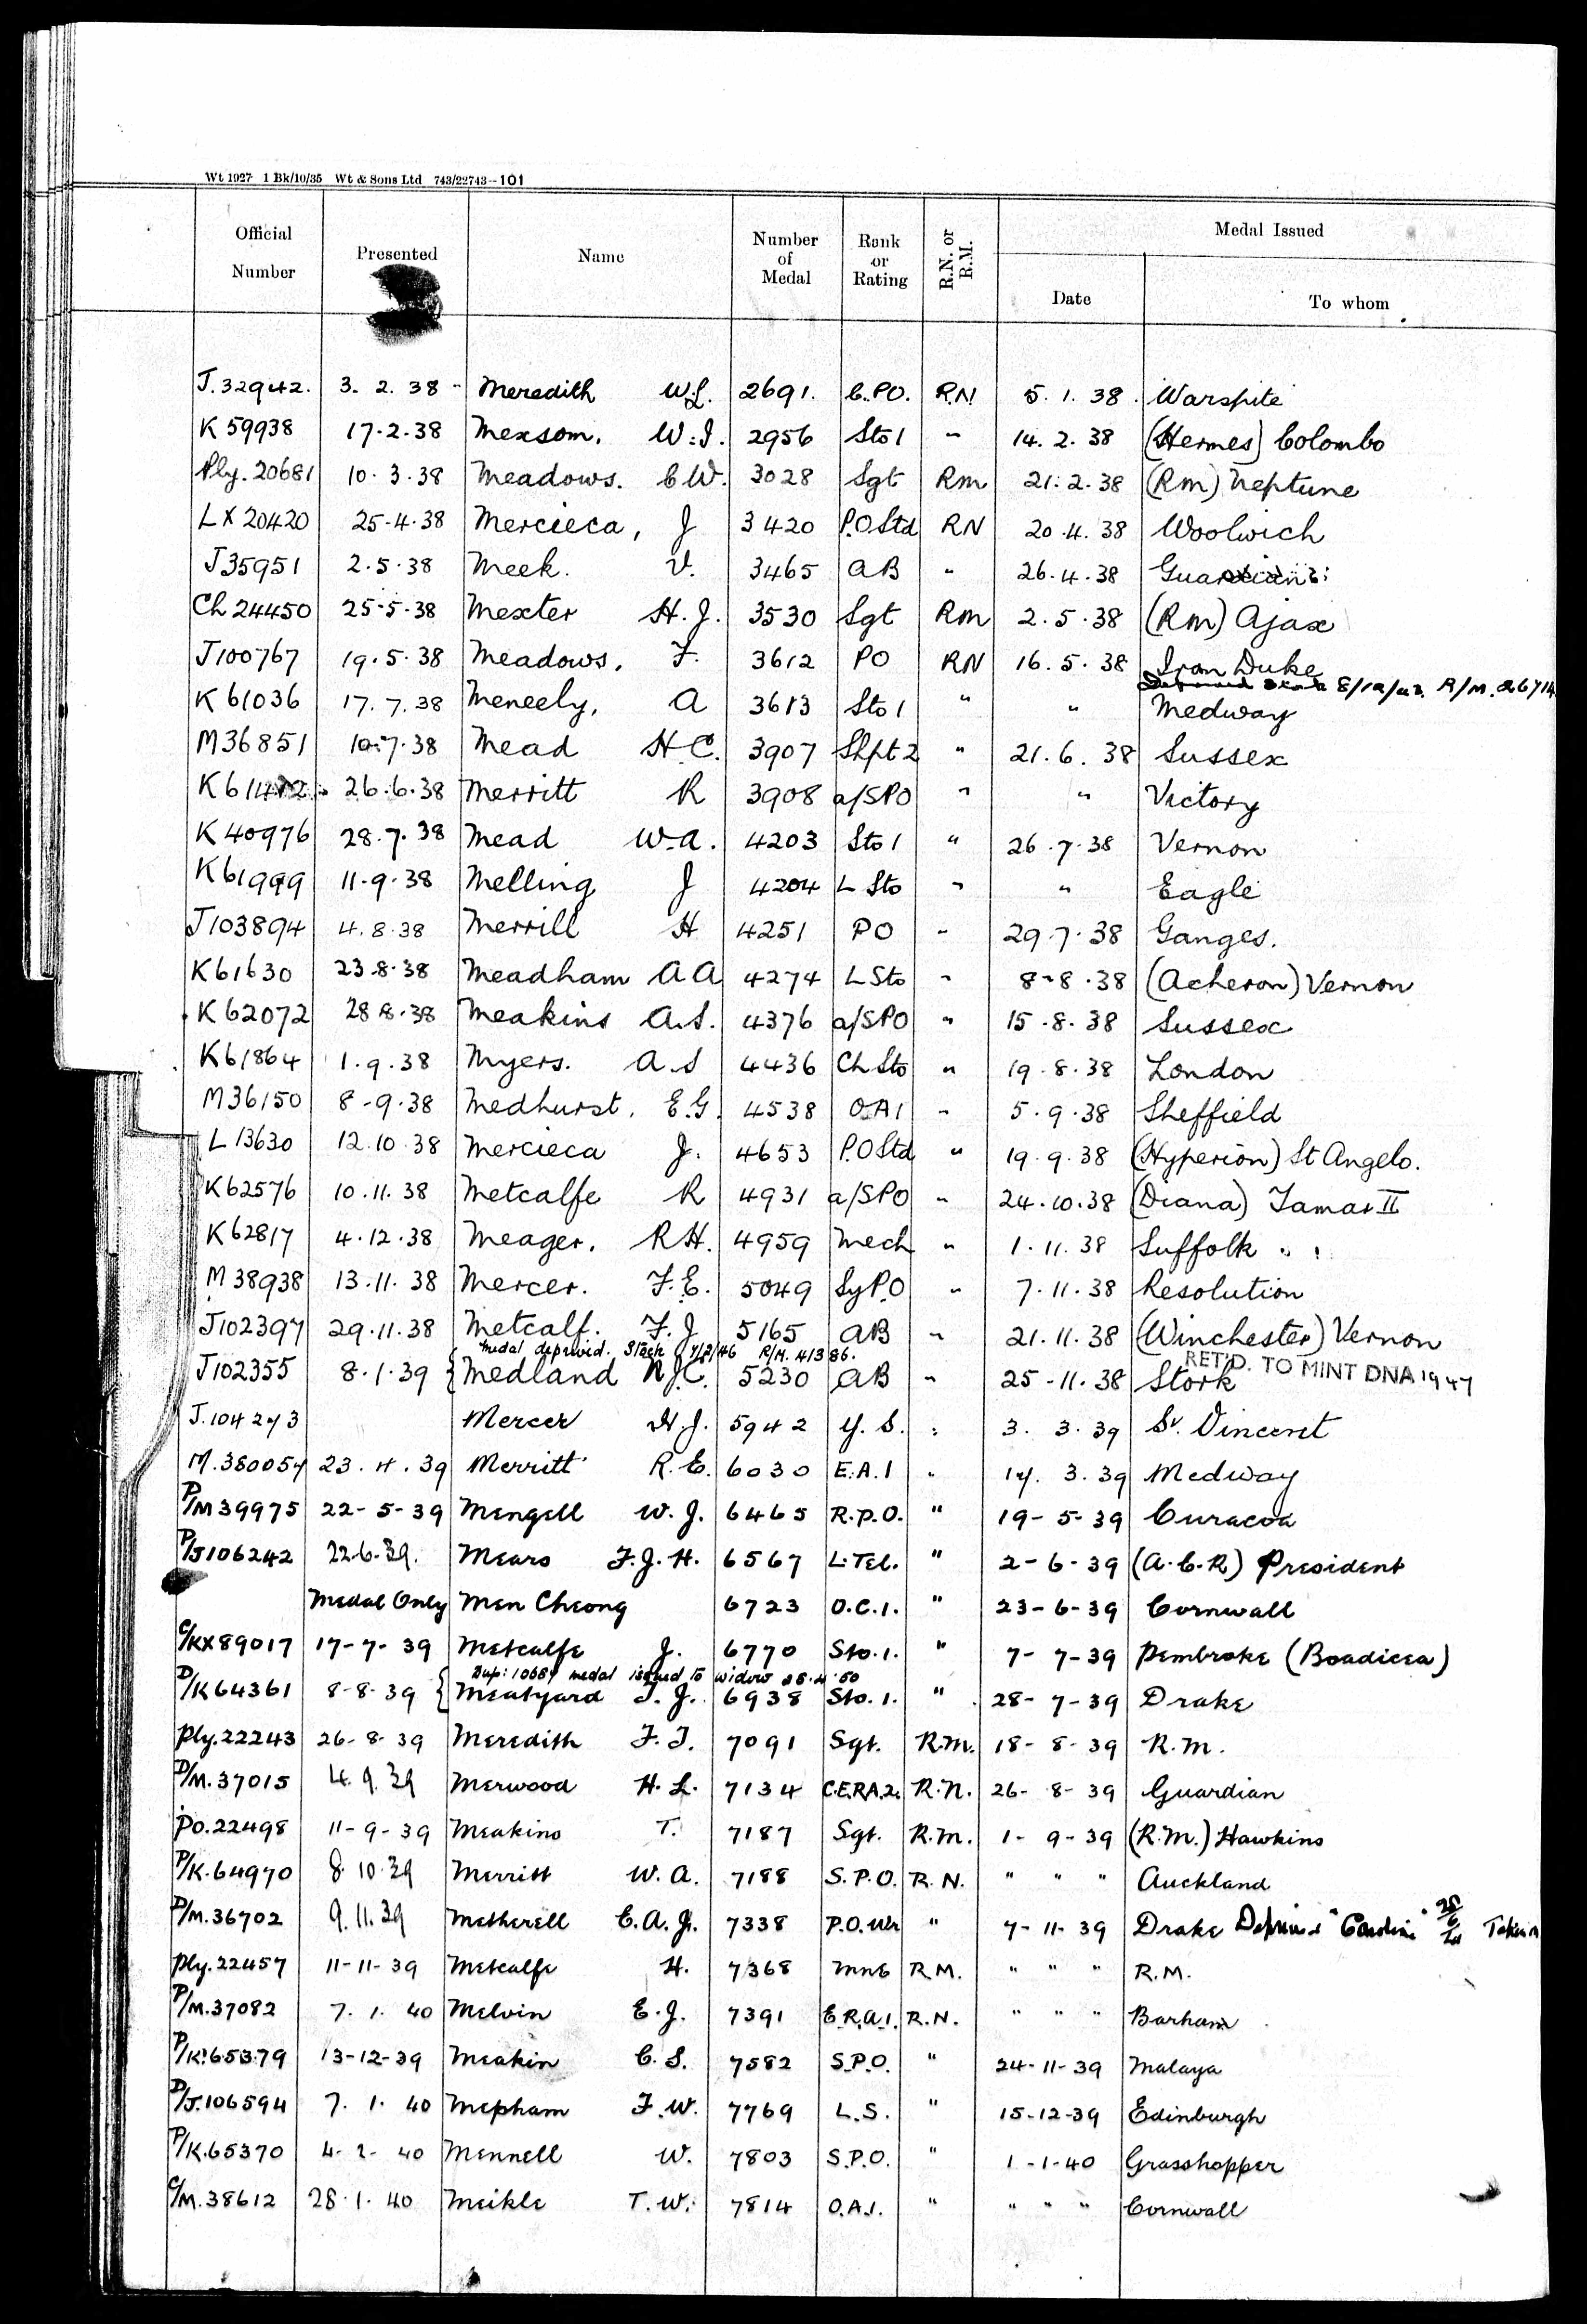 Wt 1927 1 Bk/10/35 Wt & Sons Ltd 743/22743-101
Official Number Presented Name Number of Medal Rank or Rating R.N. or R.M. Medal Issued
Date To whom
J.32942. 3. 2. 38 Meredith W.L. 2691. C.PO. R.N. 5. 1. 38. Warspite
K 59938 17.2.38 Mexsom. W.J. 2956 Sto 1 " 14. 2. 38 (Hermes) Colombo
Ply. 20681 10. 3. 38 Meadows. C W. 3028 Sgt Rm 21. 2. 38 (Rm) Neptune
LX 20420 25.4.38 Mercieca, J 3420 P.O Std RN 20.4. 38 Woolwich
J35951 2.5.38 Meek. V. 3465 AB " 26.4.38 Guardian
Ch 24450 25.5.38 Mexter H.J. 3530 Sgt Rm 2.5.38 (Rm) Ajax
J100767 19.5.38 Meadows. F. 3612 PO RN 16.5.38 Iron Duke
8/12/42. R/M. 26714
K 61036 17.7.38 Meneely, A 3613 Sto 1 " " Medway
M36851 10.7.38 Mead H.C. 3907 Shpt 2 " 21.6.38 Sussex
26.6.38 Merritt R 3908 a/SPO " " Victory
K 40976 28.7.38 Mead W.A. 4203 Sto 1 " 26.7.38 Vernon
K61999 11.9.38 Melling J 4204 L Sto " " Eagle
J103894 4.8.38 Merrill H 4251 PO " 29.7.38 Ganges.
K61630 23.8.38 Meadham A A 4274 L Sto " 8.8.38 (Acheron) Vernon
K 62072 28.8.38 Meakins A.S. 4376 a/SPO " 15.8.38 Sussex
K61864 1.9.38 Myers. A.S 4436 Ch Sto " 19.8.38 London
M36150 8.9.38 Medhurst. E.G. 4538 O.A 1 " 5.9.38 Sheffield
L 13630 12.10.38 Mercieca J. 4653 P.O Std " 19.9.38 (Hyperion) St Angelo.
K62576 10.11.38 Metcalfe R 4931 a/SPO " 24.10.38 (Diana) Tamar II
K 62817 4.12.38 Meager. R H. 4959 Mech " 1.11.38 Suffolk
M 38938 13.11.38 Mercer. F.E. 5049 Sy P.O " 7.11.38 Resolution
J102397 29.11.38 Metcalf. F.J 5165 AB " 21.11.38 (Winchester) Vernon
Medal deprived. R/M. 41386.
RET'D. TO MINT DNA 1947
J102355 8.1.39 { Medland N.J.C. 5230 AB " 25-11.38 Stork
J.104243 Mercer H.J. 5942 Y. S. " 3. 3. 39 St. Vincent
M.380054 23.4.39 Merritt R.E. 6030 E.A.1 " 14. 3. 39 Medway
P/M39975 22-5-39 Mengell W.J. 6465 R.P.O. " 19-5-39 Curacoa
P/J106242 22.6.39. Mears F.J.H. 6567 L.Tel. " 2-6-39 (A.C.R) President
Medal Only Men Cheong 6723 O.C.1. " 23-6-39 Cornwall
C/KX89017 17-7-39 Metcalfe J. 6770 Sto.1. " 7-7-39 Pembroke (Boadicea)
Dup: 10684 medal issued to widow 28.4.50
D/K64361 8-8-39 { Meatyard T.J. 6938 Sto. 1. " 28-7-39 Drake
Ply.22243 26-8-39 Meredith F.T. 7091 Sgt. R.M. 18-8-39 R.M.
D/M.37015 4.9.39 Merwood H.L. 7134 C.E.R.A.2. R.N. 26-8-39 Guardian
Po.22498 11-9-39 Meakins T. 7187 Sgt. R.M. 1-9-39 (R.M.) Hawkins
P/K.64970 8.10.39 Merritt W.A. 7188 S.P.O. R.N. " " " Auckland
D/M.36702 9.11.39 Metherell C.A.J. 7338 P.O.Wr " 7-11-39 Drake Deprived
Ply.22457 11-11-39 Metcalfe H. 7368 Mne R.M. " " " R.M.
P/M.37082 7. 1. 40 Melvin E.J. 7391 E.R.A.1. R.N. " " " Barham
P/K.65379 13-12-39 Meakin C.S. 7582 S.P.O. " 24-11-39 Malaya
D/J.106594 7. 1. 40 Mepham F.W. 7769 L.S. " 15-12-39 Edinburgh
P/K.65370 4-2-40 Mennell W. 7803 S.P.O. " 1-1-40 Grasshopper
C/M.38612 28.1.40 Meikle T.W. 7814 O.A.1. " " " " Cornwall